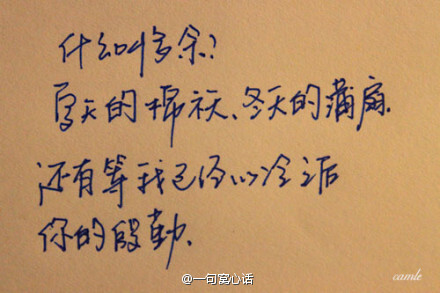 什么叫多余?
夏天的棉袄、冬天的蒲扇.
还有等我已经心冷之后
你的殷勤.
camle
@一句窝心话